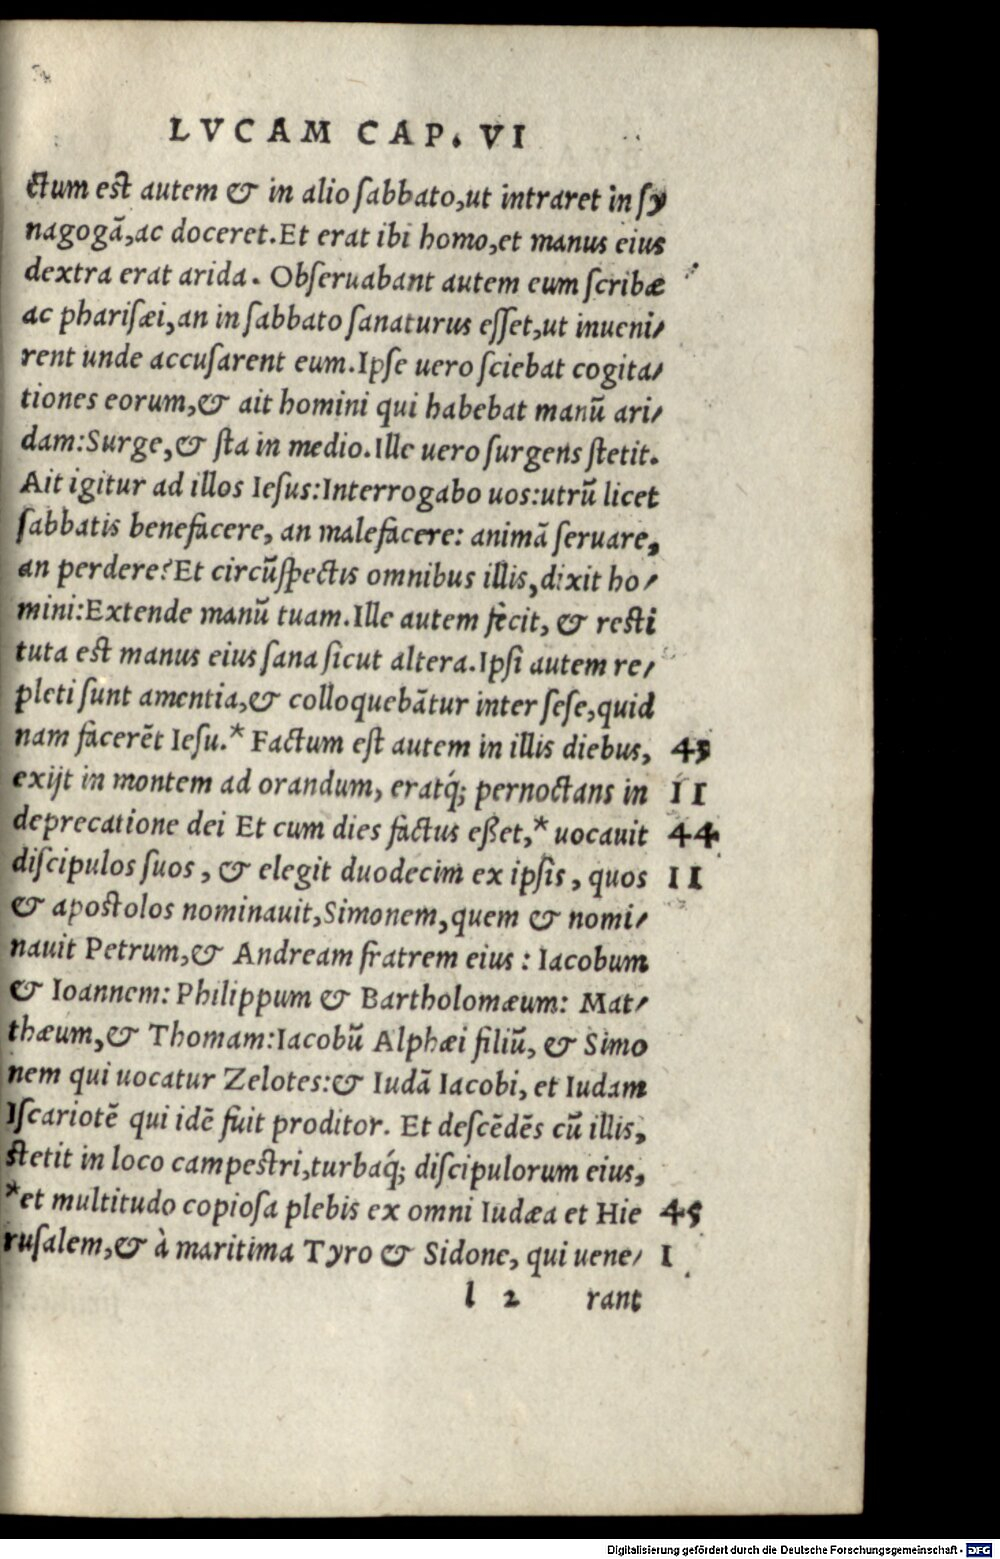 LVCAM CAP. VI
ctum est autem & in alio ſabbato,ut intraret in ſy
nagogã,ac doceret.Et erat ibi homo,et manus eius
dextra erat arida. Obſeruabant autem eum ſcribæ
ac phariſæi,an in ſabbato ſanaturus eſſet,ut inueni/
rent unde accuſarent eum.Ipſe uero ſciebat cogita/
tiones eorum,& ait homini qui habebat manũ ari/
dam:Surge,& ſta in medio.Ille uero ſurgens ſtetit.
Ait igitur ad illos Ieſus:Interrogabo uos:utrũ licet
ſabbatis benefacere, an malefacere: animã ſeruare,
an perdere?Et circũſpectis omnibus illis,dixit ho/
mini:Extende manũ tuam.Ille autem fecit, & reſti
tuta eſt manus eius ſana ſicut altera.Ipſi autem re/
pleti ſunt amentia,& colloquebãtur inter ſeſe,quid
nam facerẽt Ieſu.* Factum eſt autem in illis diebus, 43
exijt in montem ad orandum, eratq́; pernoctans in II
deprecatione dei Et cum dies factus eßet,* uocauit 44
diſcipulos ſuos, & elegit duodecim ex ipſis, quos II
& apoſtolos nominauit,Simonem,quem & nomi/
nauit Petrum,& Andream fratrem eius: Iacobum
& Ioannem: Philippum & Bartholomæum: Mat/
thæum,& Thomam:Iacobũ Alphæi filiũ, & Simo
nem qui uocatur Zelotes:& Iudã Iacobi, et Iudam
Iſcariotẽ qui idẽ fuit proditor. Et deſcẽdẽs cũ illis,
ſtetit in loco campeſtri,turbaq́; diſcipulorum eius,
*et multitudo copioſa plebis ex omni Iudæa et Hie 45
ruſalem,& à maritima Tyro & Sidone, qui uene/ I
l 2 rant
Digitalisierung gefördert durch die Deutsche Forschungsgemeinschaft - DFG